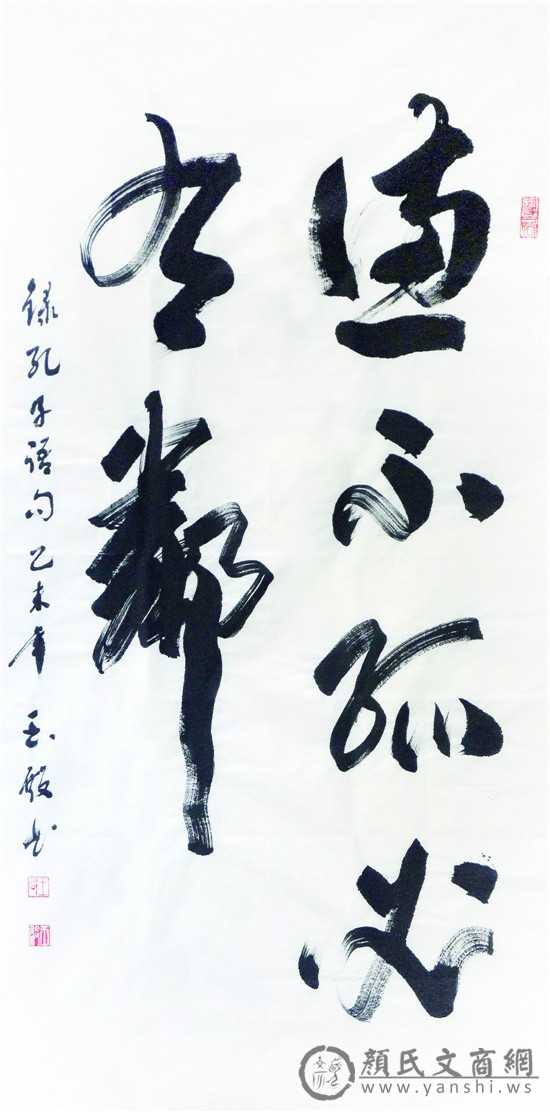 德不孤必
有鄰
錄孔子語句乙未年
書
顏氏文商網
www.yanshi.ws